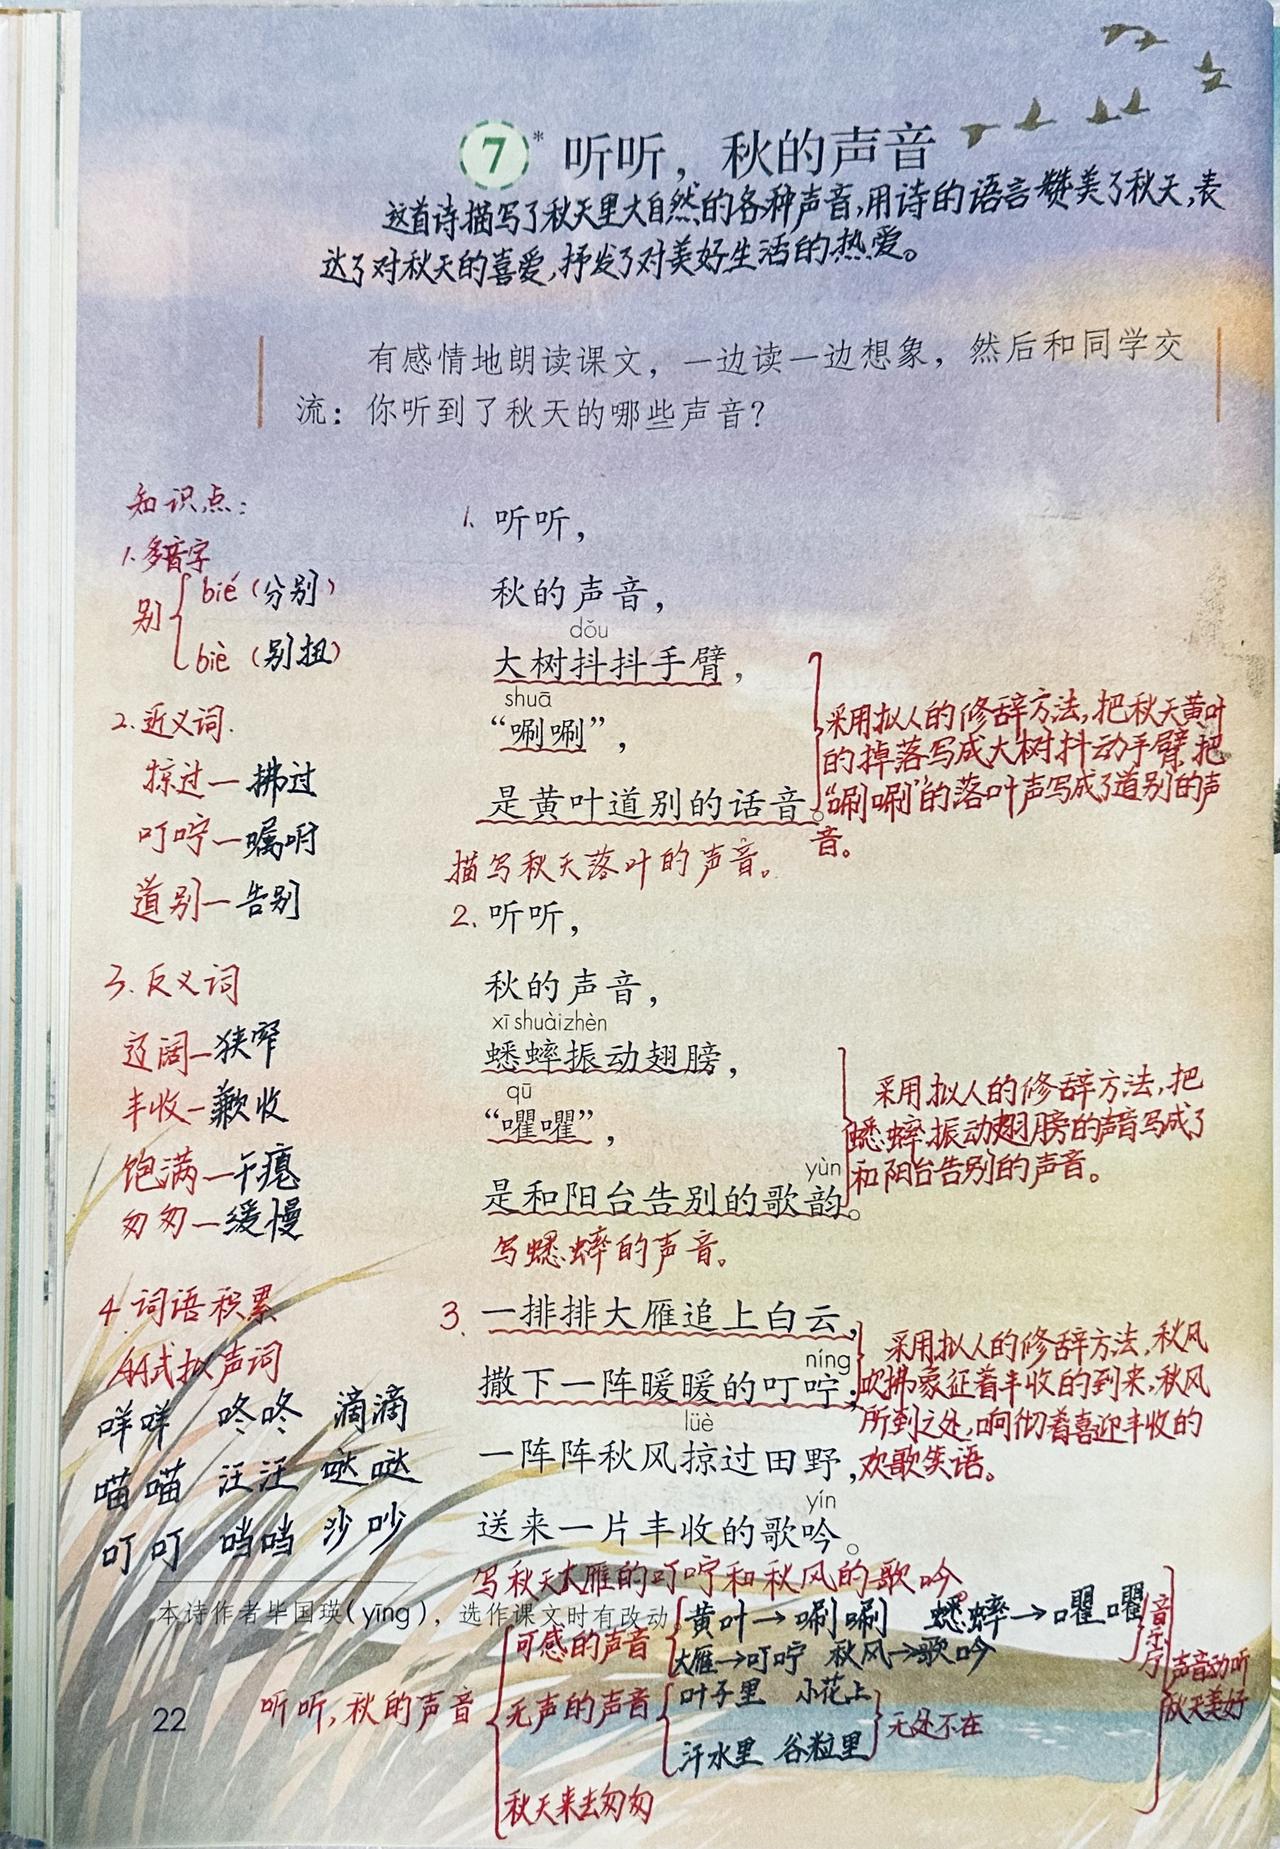 7* 听听，秋的声音
这首诗描写了秋天里大自然的各种声音,用诗的语言赞美了秋天,表
达了对秋天的喜爱,抒发了对美好生活的热爱。
有感情地朗读课文，一边读一边想象，然后和同学交
流：你听到了秋天的哪些声音？
知识点:
1.多音字
别 bié (分别)
biè (别扭)
2.近义词.
掠过—拂过
叮咛—嘱咐
道别—告别
3.反义词
辽阔—狭窄
丰收—歉收
饱满—干瘪
匆匆—缓慢
4.词语积累
AA式拟声词
咩咩 咚咚 滴滴
喵喵 汪汪 哒哒
叮叮 当当 沙沙
1. 听听，
秋的声音，
dǒu
大树抖抖手臂，
shuā
“唰唰”，
是黄叶道别的话音。
采用拟人的修辞方法,把秋天黄叶
的掉落写成大树抖动手臂,把
“唰唰”的落叶声写成了道别的声
音。
描写秋天落叶的声音。
2. 听听，
秋的声音，
xī shuài zhèn
蟋蟀振动翅膀，
qū
“㘗㘗”，
yùn
是和阳台告别的歌韵。
采用拟人的修辞方法,把
蟋蟀振动翅膀的声音写成了
和阳台告别的声音。
写蟋蟀的声音。
3. 一排排大雁追上白云，
níng
撒下一阵暖暖的叮咛；
lüè
一阵阵秋风掠过田野，
yín
送来一片丰收的歌吟。
采用拟人的修辞方法,秋风
吹拂象征着丰收的到来,秋风
所到之处,响彻着喜迎丰收的
欢歌笑语。
写秋天大雁的叮咛和秋风的歌吟
本诗作者毕国瑛(yīng)，选作课文时有改动
听听,秋的声音
可感的声音
黄叶→唰唰 蟋蟀→㘗㘗
大雁→叮咛 秋风→歌吟
无声的声音
叶子里 小花上
汗水里 谷粒里
无处不在
秋天来去匆匆
音乐厅
声音动听
秋天美好
22